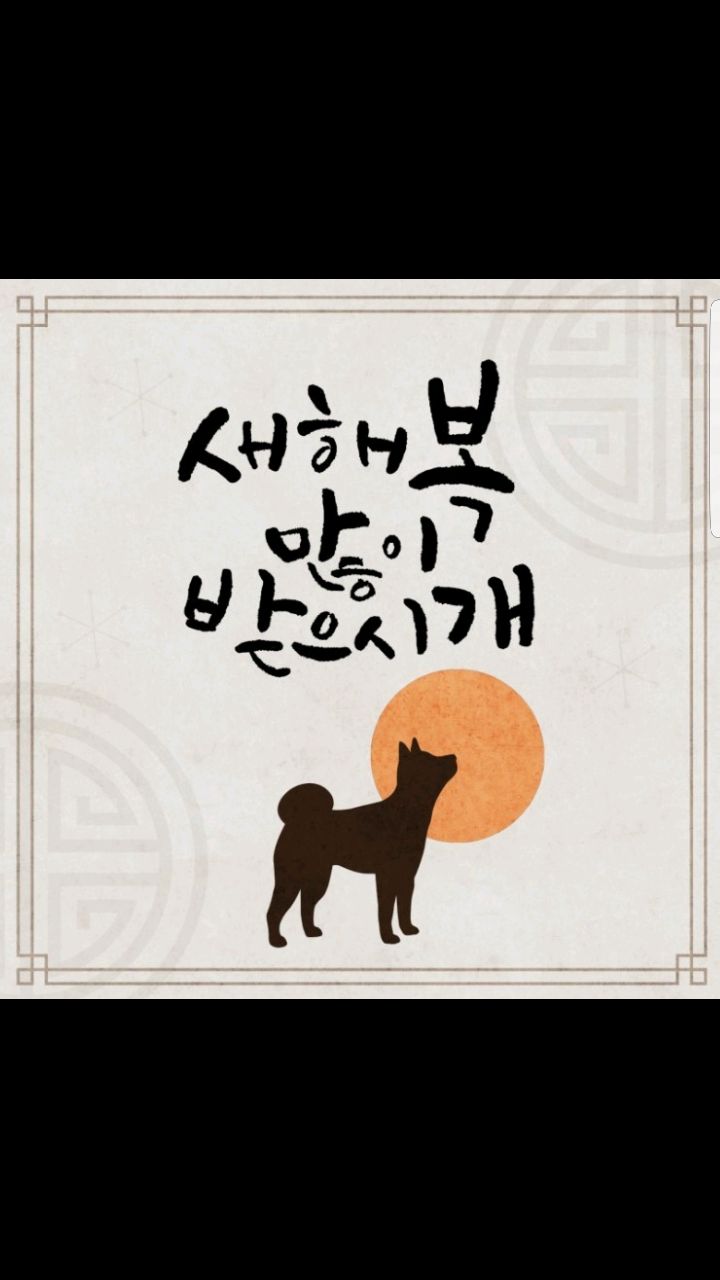 새해 복
많이
받으시개